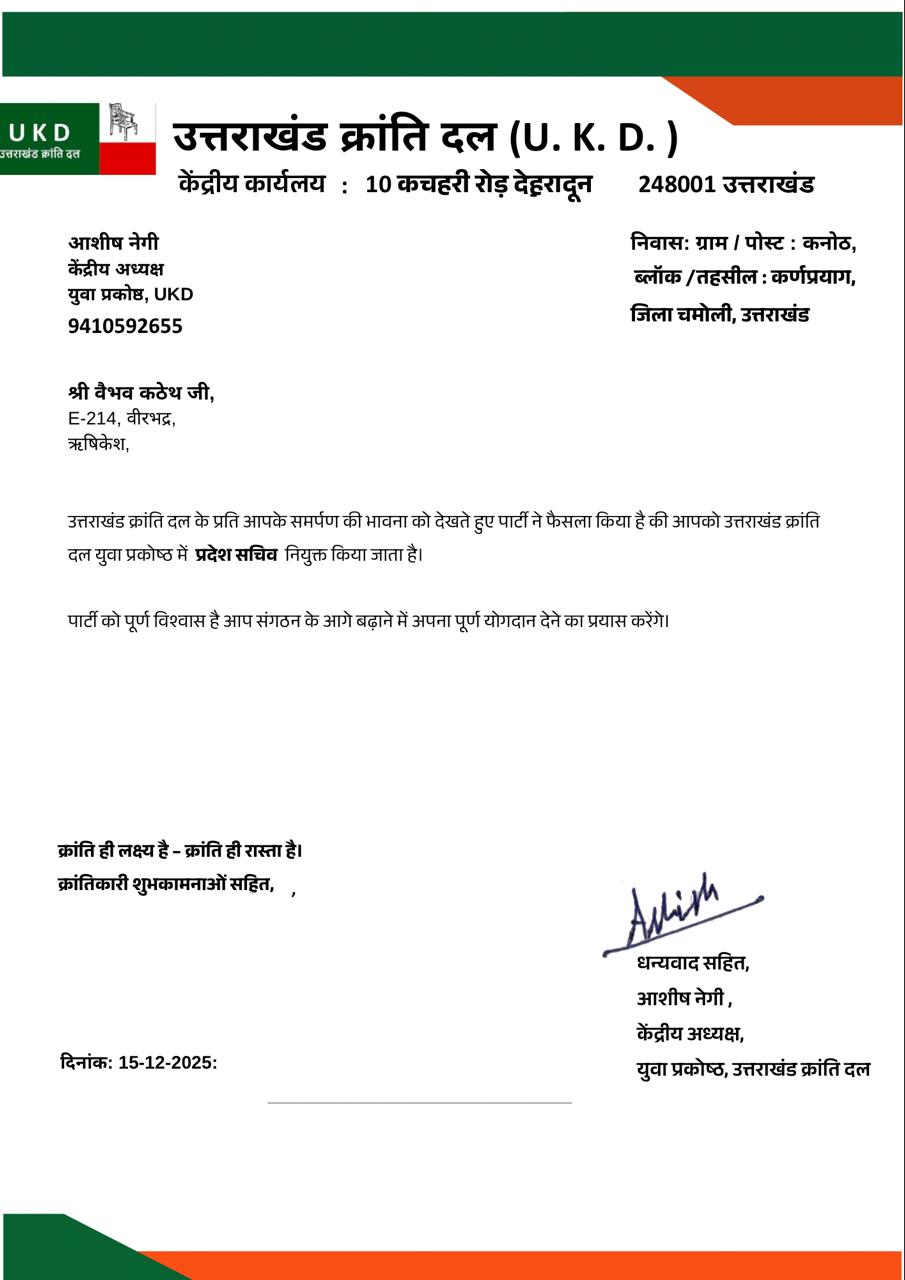 UKD
उत्तराखंड क्रांति दल
उत्तराखंड क्रांति दल (U. K. D. )
केंद्रीय कार्यलय : 10 कचहरी रोड़ देहरादून 248001 उत्तराखंड
आशीष नेगी
केंद्रीय अध्यक्ष
युवा प्रकोष्ठ, UKD
9410592655
निवास: ग्राम / पोस्ट : कनोठ,
ब्लॉक /तहसील : कर्णप्रयाग,
जिला चमोली, उत्तराखंड
श्री वैभव कठेथ जी,
E-214, वीरभद्र,
ऋषिकेश,
उत्तराखंड क्रांति दल के प्रति आपके समर्पण की भावना को देखते हुए पार्टी ने फैसला किया है की आपको उत्तराखंड क्रांति
दल युवा प्रकोष्ठ में प्रदेश सचिव नियुक्त किया जाता है।
पार्टी को पूर्ण विश्वास है आप संगठन के आगे बढ़ाने में अपना पूर्ण योगदान देने का प्रयास करेंगे।
क्रांति ही लक्ष्य है – क्रांति ही रास्ता है।
क्रांतिकारी शुभकामनाओं सहित, ,
Ashish
धन्यवाद सहित,
आशीष नेगी ,
केंद्रीय अध्यक्ष,
युवा प्रकोष्ठ, उत्तराखंड क्रांति दल
दिनांक: 15-12-2025: